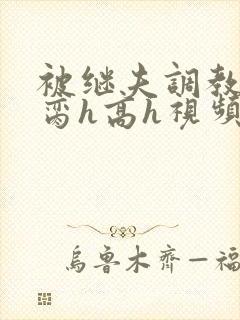 被继夫調教
脔h高h視頻
烏魯木齊一福